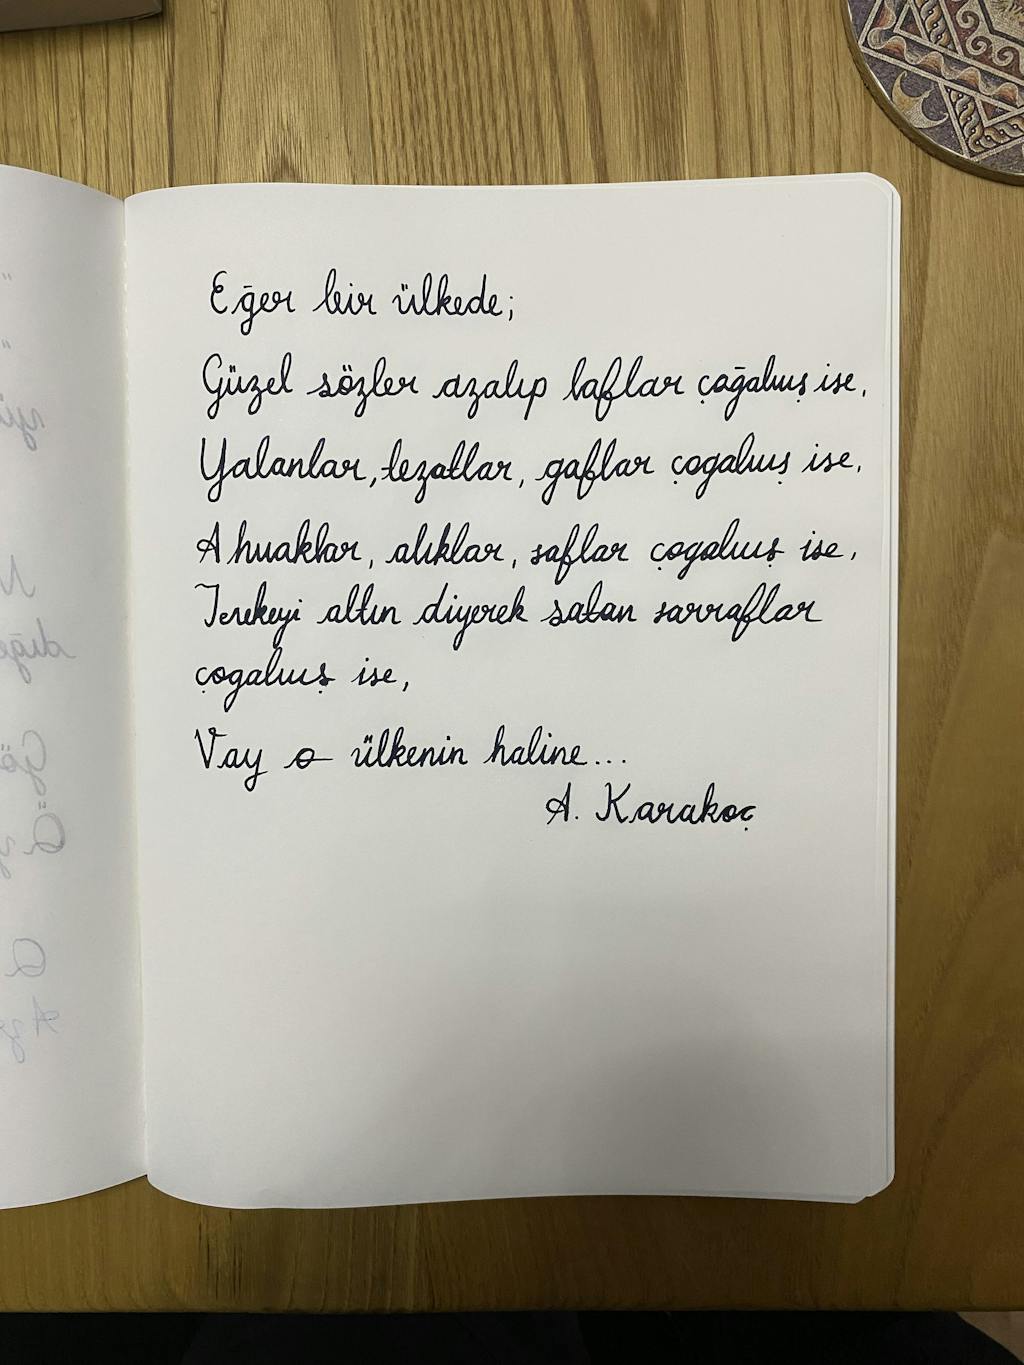 Eğer bir ülkede;
Güzel sözler azalıp laflar çoğalmış ise,
Yalanlar, tezatlar, gaflar çogalmış ise,
Ahmaklar, alıklar, saflar çogalmış ise,
Terekeyi altın diyerek satan sarraflar
çogalmış ise,
Vay o ülkenin haline...
A. Karakoç